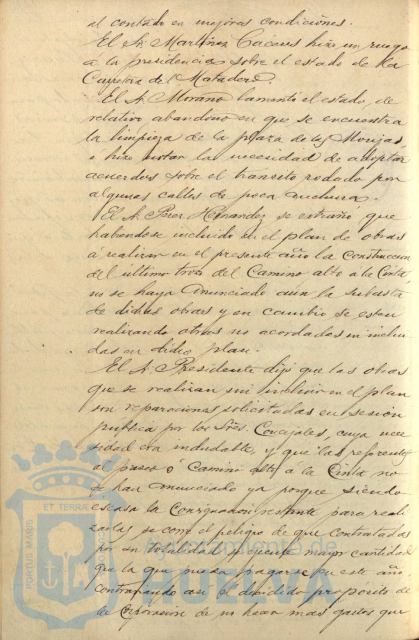 al contado en mejores condiciones.
El Sr. Martinez Cáceres hizo un ruego
a la presidencia sobre el estado de la
Carretera del Matadero.
El Sr. Moraño lamentó el estado de
relativo abandono en que se encuentra
la limpieza de la plaza de las Monjas
e hizo notar la necesidad de adoptar
acuerdos sobre el tránsito rodado por
algunas calles de poca anchura.
El Sr. Pérez Hernandez se estrañó que
habiendose incluido en el plan de obras
á realizar en el presente año la construccion
del último trozo del Camino alto a la Cinta,
no se haya anunciado aún la subasta
de dichas obras y en cambio se estén
realizando otras no acordadas ni inclui-
das en dicho plan.
El Sr. Presidente dijo que las obras
que se realizan sin incluir en el plan
son reparaciones solicitadas en sesión
publica por los Sres. Concejales, cuya nece-
sidad era indudable, y que las referentes
al paseo o Camino alto á la Cinta no
se han anunciado ya porque siendo
escasa la consignación restante para reali-
zarlas se corre el peligro de que contratadas
por su totalidad se ejecute mayor cantidad
que la que pueda pagarse en este año
contrariando así el decidido propósito de
la Corporación de no hacer más gastos que
PORTUS MARIS ET TERRAE CUSTODIA
Ayuntamiento de
HUELVA